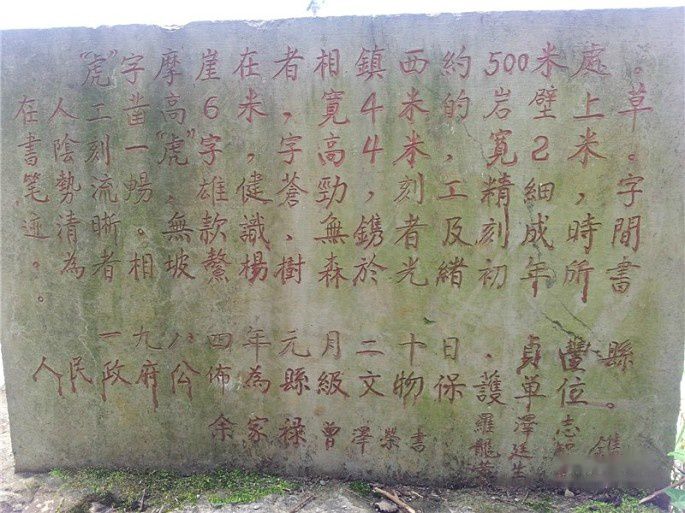 "虎"字摩崖在者相鎮西約500米處。
在人工凿高6米，寬4米的岩壁上草
書陰刻一"虎"字，字高4米，寬2米。
笔勢流暢，雄健蒼勁，刻工精細，字
迹清晰。無款識、無鐫刻者及刻成時間
。為者相坡鰲楊樹森於光緒初年所書
。
一九八四年元月二十日，貞豐縣
人民政府公佈為縣級文物保護單位。
余家祿
曾澤榮書
羅龍
鐫